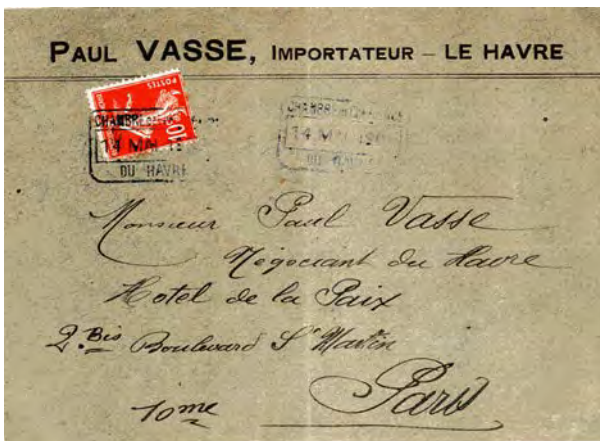 PAUL VASSE, IMPORTATEUR – LE HAVRE
POSTES
10c
CHAMBRE DE COMMERCE
14 MAI 19
DU HAVRE
CHAMBRE
14 MAI 190
DU
Monsieur Paul Vasse
Négociant du Havre
Hotel de la Paix
2. Bis Boulevard St Martin
10me Paris